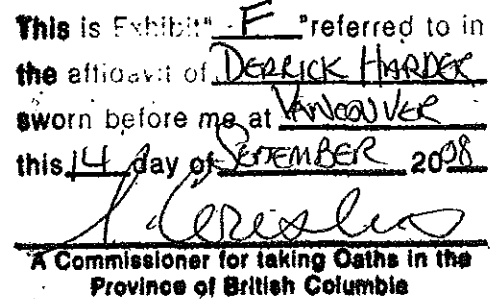 This is Exhibit " F " referred to in
the affidavit of DERRICK HARDER
sworn before me at VANCOUVER
this 14 day of SEPTEMBER 2008
A Commissioner for taking Oaths in the
Province of British Columbia